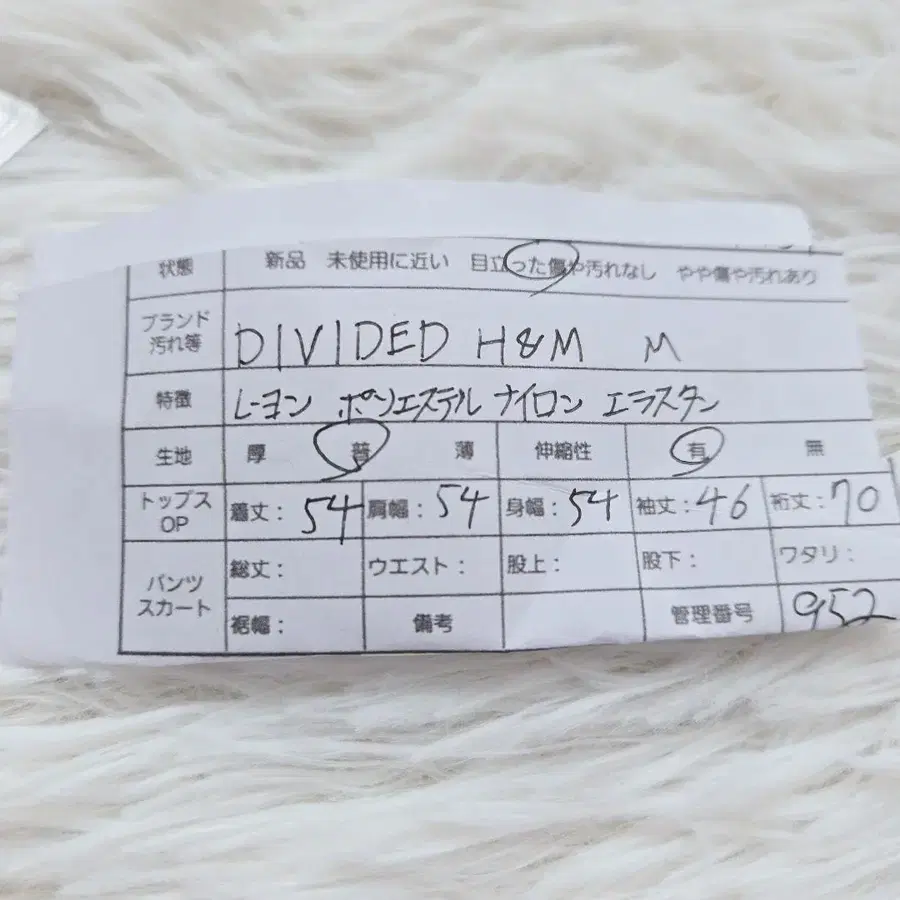 状態 新品 未使用に近い 目立った傷や汚れなし やや傷や汚れあり
ブランド 汚れ等 DIVIDED H&M M
特徴 レーヨン ポリエステル ナイロン エラスタン
生地 厚 普 薄 伸縮性 有 無
トップス OP 着丈: 54 肩幅: 54 身幅: 54 袖丈: 46 裄丈: 70
パンツ スカート 総丈: ウエスト: 股上: 股下: ワタリ:
裾幅: 備考 管理番号 952